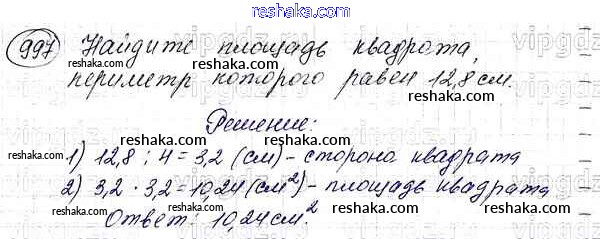 997 Найдите площадь квадрата,
периметр которого равен 12,8 см.
Решение:
1) 12,8 : 4 = 3,2 (см) - сторона квадрата
2) 3,2 · 3,2 = 10,24 (см²) - площадь квадрата
Ответ: 10,24 см²
reshaka.com
reshaka.com
reshaka.com
reshaka.com
reshaka.com
reshaka.com
reshaka.com
reshaka.com
reshaka.com
reshaka.com
reshaka.com
reshaka.com